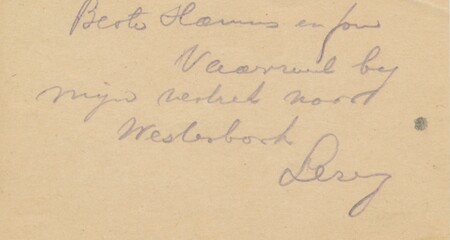 Beste Hannis en fam
Vaarwel by
mijn vertrek naar
Westerbork